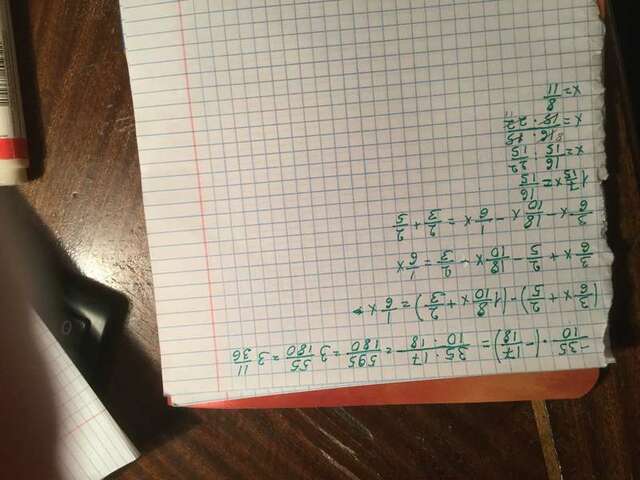 -35/10 · (-17/18) = 35 · 17/10 · 18 = 595/180 = 3 55/180 = 3 11/36
(3/6 x + 2/5) - (1 8/10 x + 2/3) = 1/6 x
3/6 x + 2/5 - 18/10 x - 2/3 = 1/6 x
3/6 x - 18/10 x - 1/6 x = 2/3 + 2/5
1 7/15 x = 16/15
x = 16/15 : 22/15
x = 16 · 15/15 · 22
x = 8/11